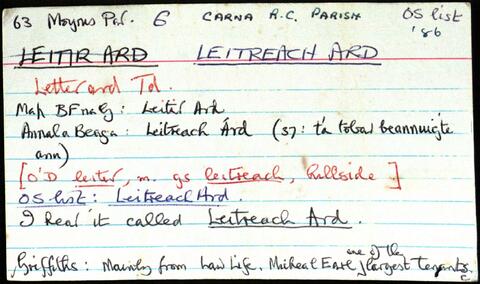 63 Moyrus Par. 6 CARNA R.C. PARISH OS list '86
LEITIR ARD LEITREACH ARD
Letter ard Td.
Map BFnaG: Leitir Ard
Annála Beaga: Leitreach Árd (37: tá tobar beannuigte
ann)
[O'D leitir, m. gs leitreach, hillside]
OS list: Leitreach Ard.
I hear it called Leitreach Ard.
Griffiths: Mainly from Law Life. Micheal East one of the largest tenants